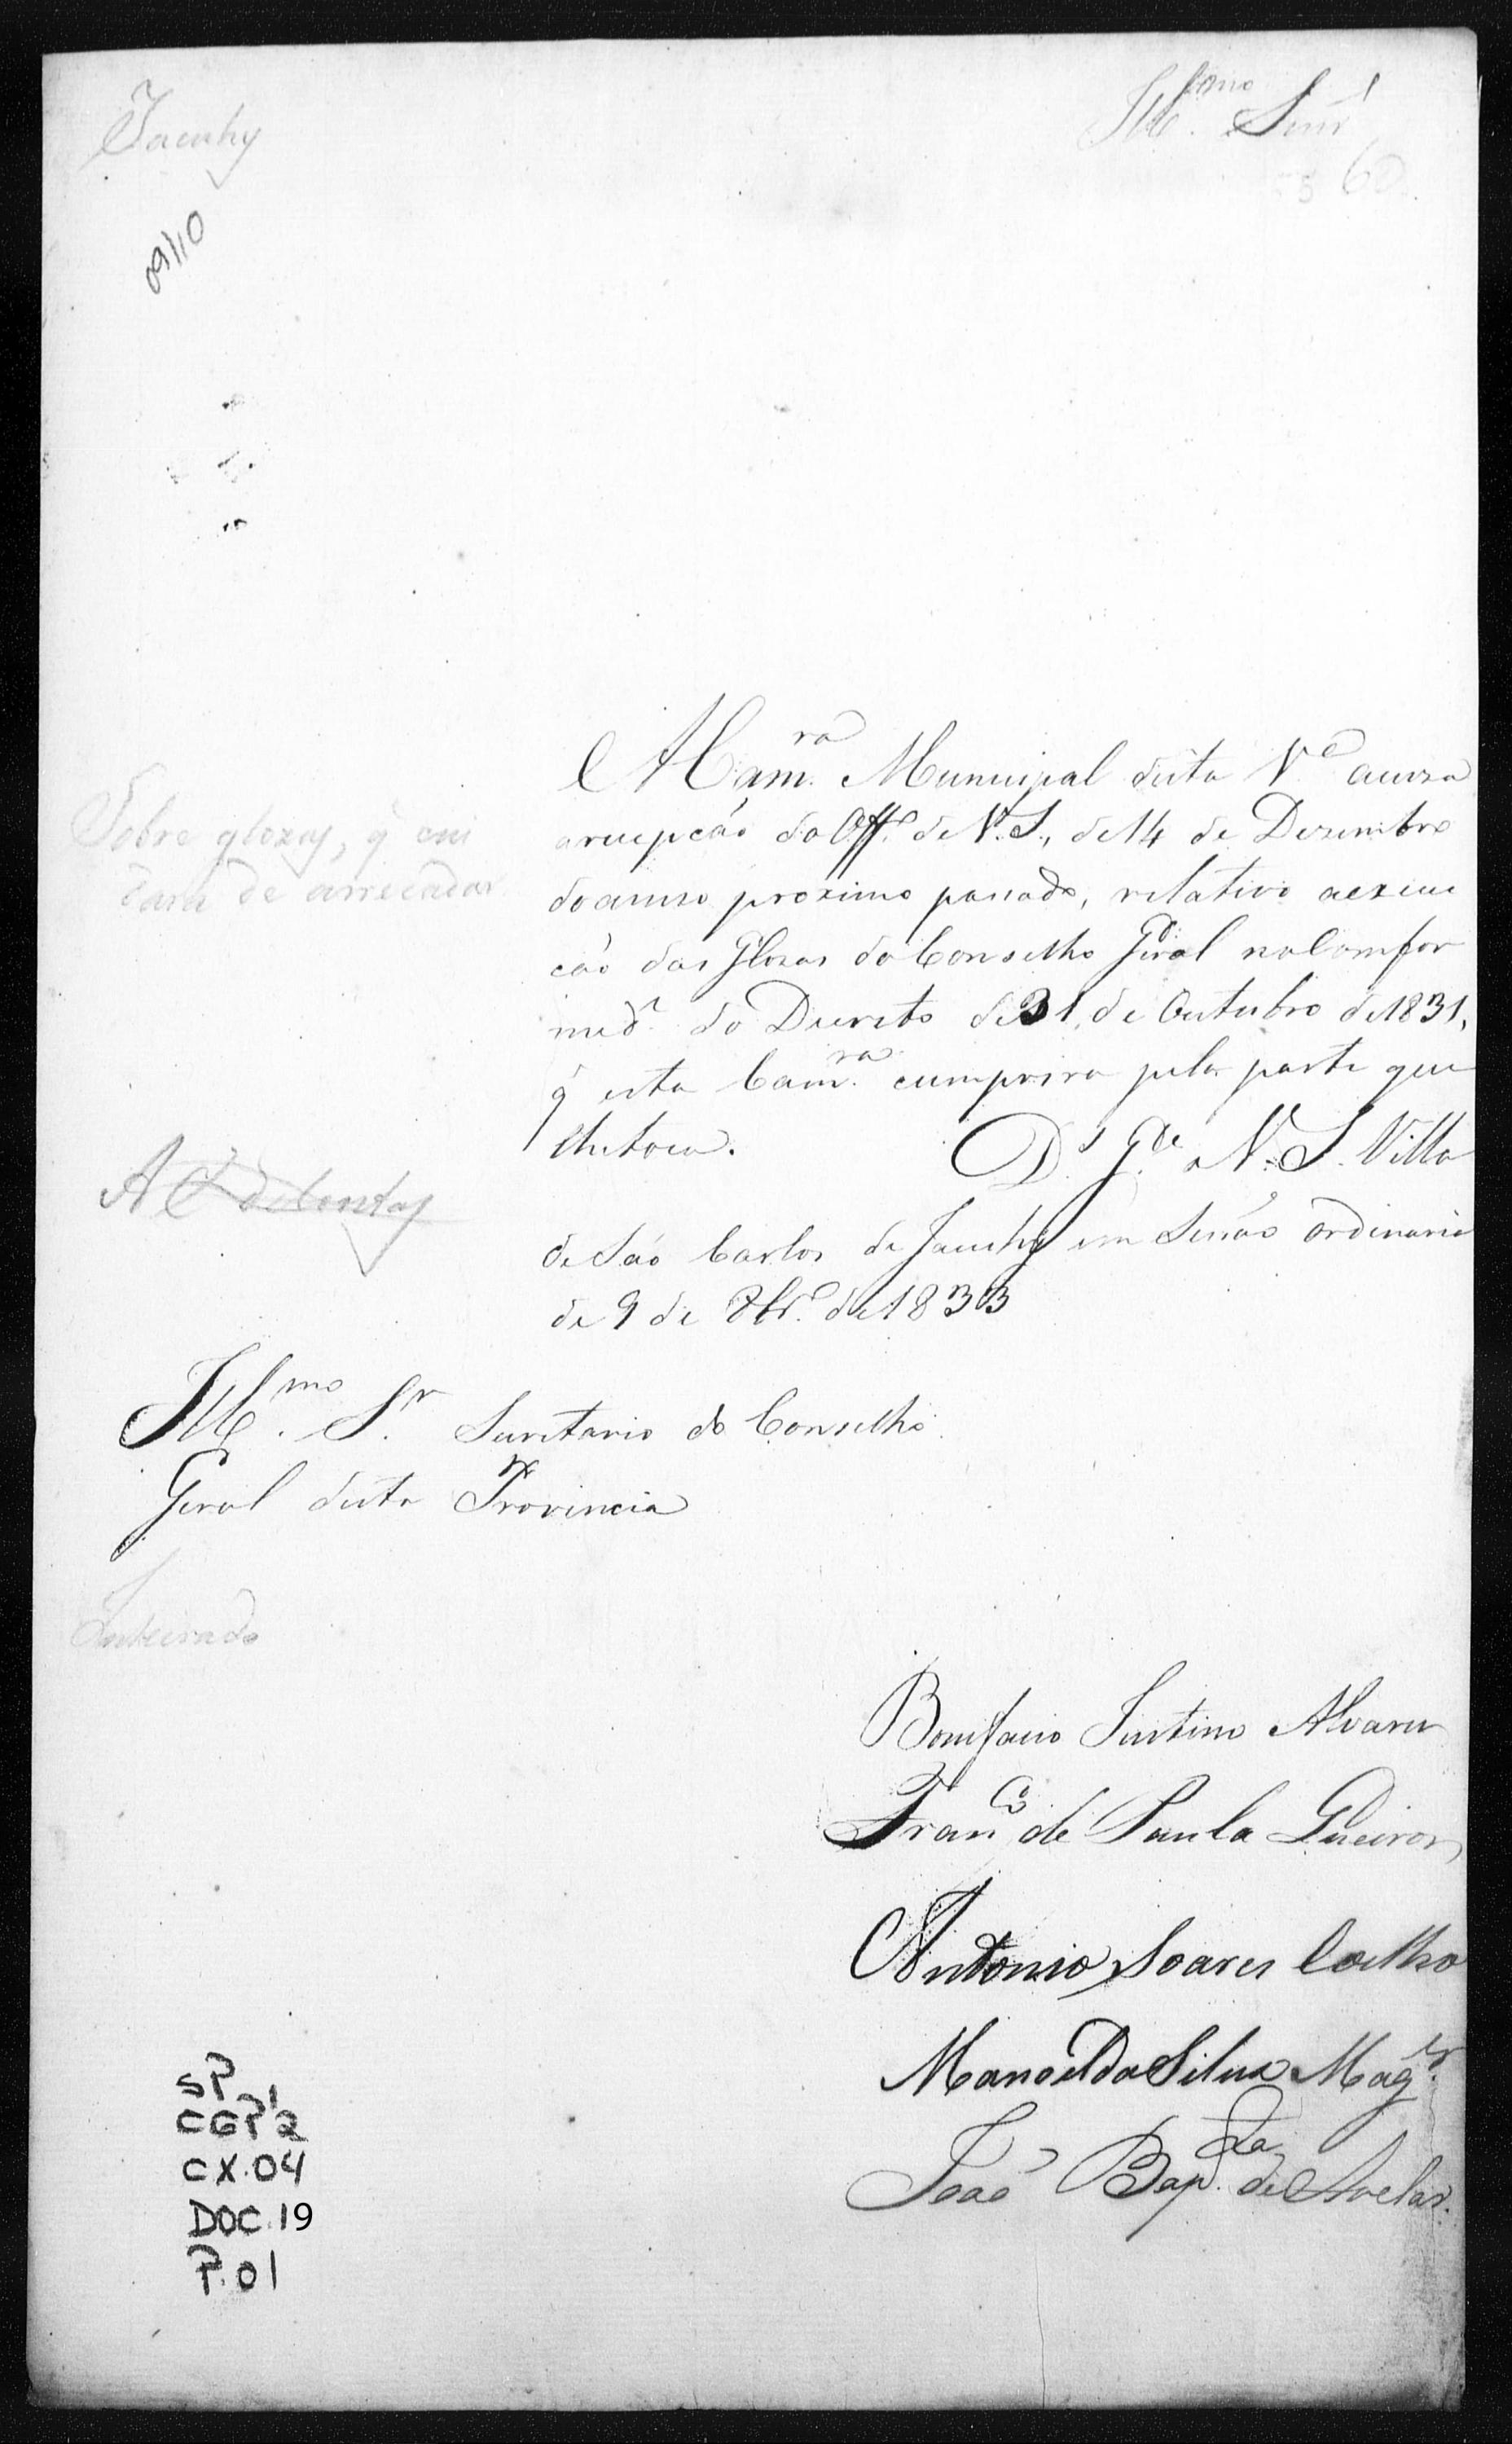 Jacuhy
Ill.mo Snr.
60
09/10
A Cam.ra Municipal desta V.a acuza
arecepcão do Off.o de V.S., de 14 de Dezembro
do anno proximo passado, relativo aexecu
cão das Glozas do Conselho Geral na Comfor
mid.e do Decreto de 31 de Outubro de 1831,
q̃ esta Cam.ra cumprira pela parte que
lhe toca. D.s G.de a V.S. Villa
de São Carlos de Jacuhy em Sessão ordinaria
de 9 de de 1833
Sobre glozas, q̃ cui
dará de arrecadar
A C. de Contas
Ill.mo S.r Secretario do Conselho
Geral desta Provincia
Inteirado
Bonifacio Justino Alvares
Fran.co de Paula
Antonio Soares Coelho
Manoel da Silva Mag.es
João Bap.ta de Avelar.
SP
CGP'2
CX.04
DOC.19
P.01